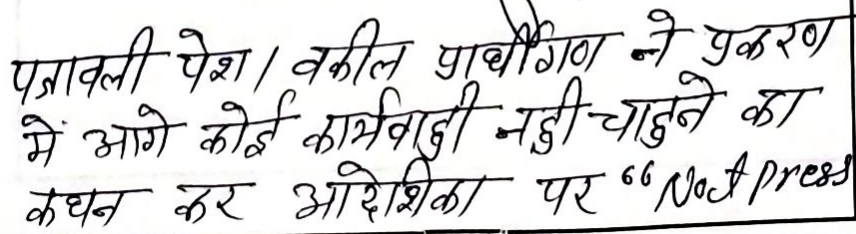 पत्रावली पेश। वकील प्रार्थीगण ने प्रकरण
में आगे कोई कार्यवाही नही चाहने का
कथन कर आदेशिका पर "Not press